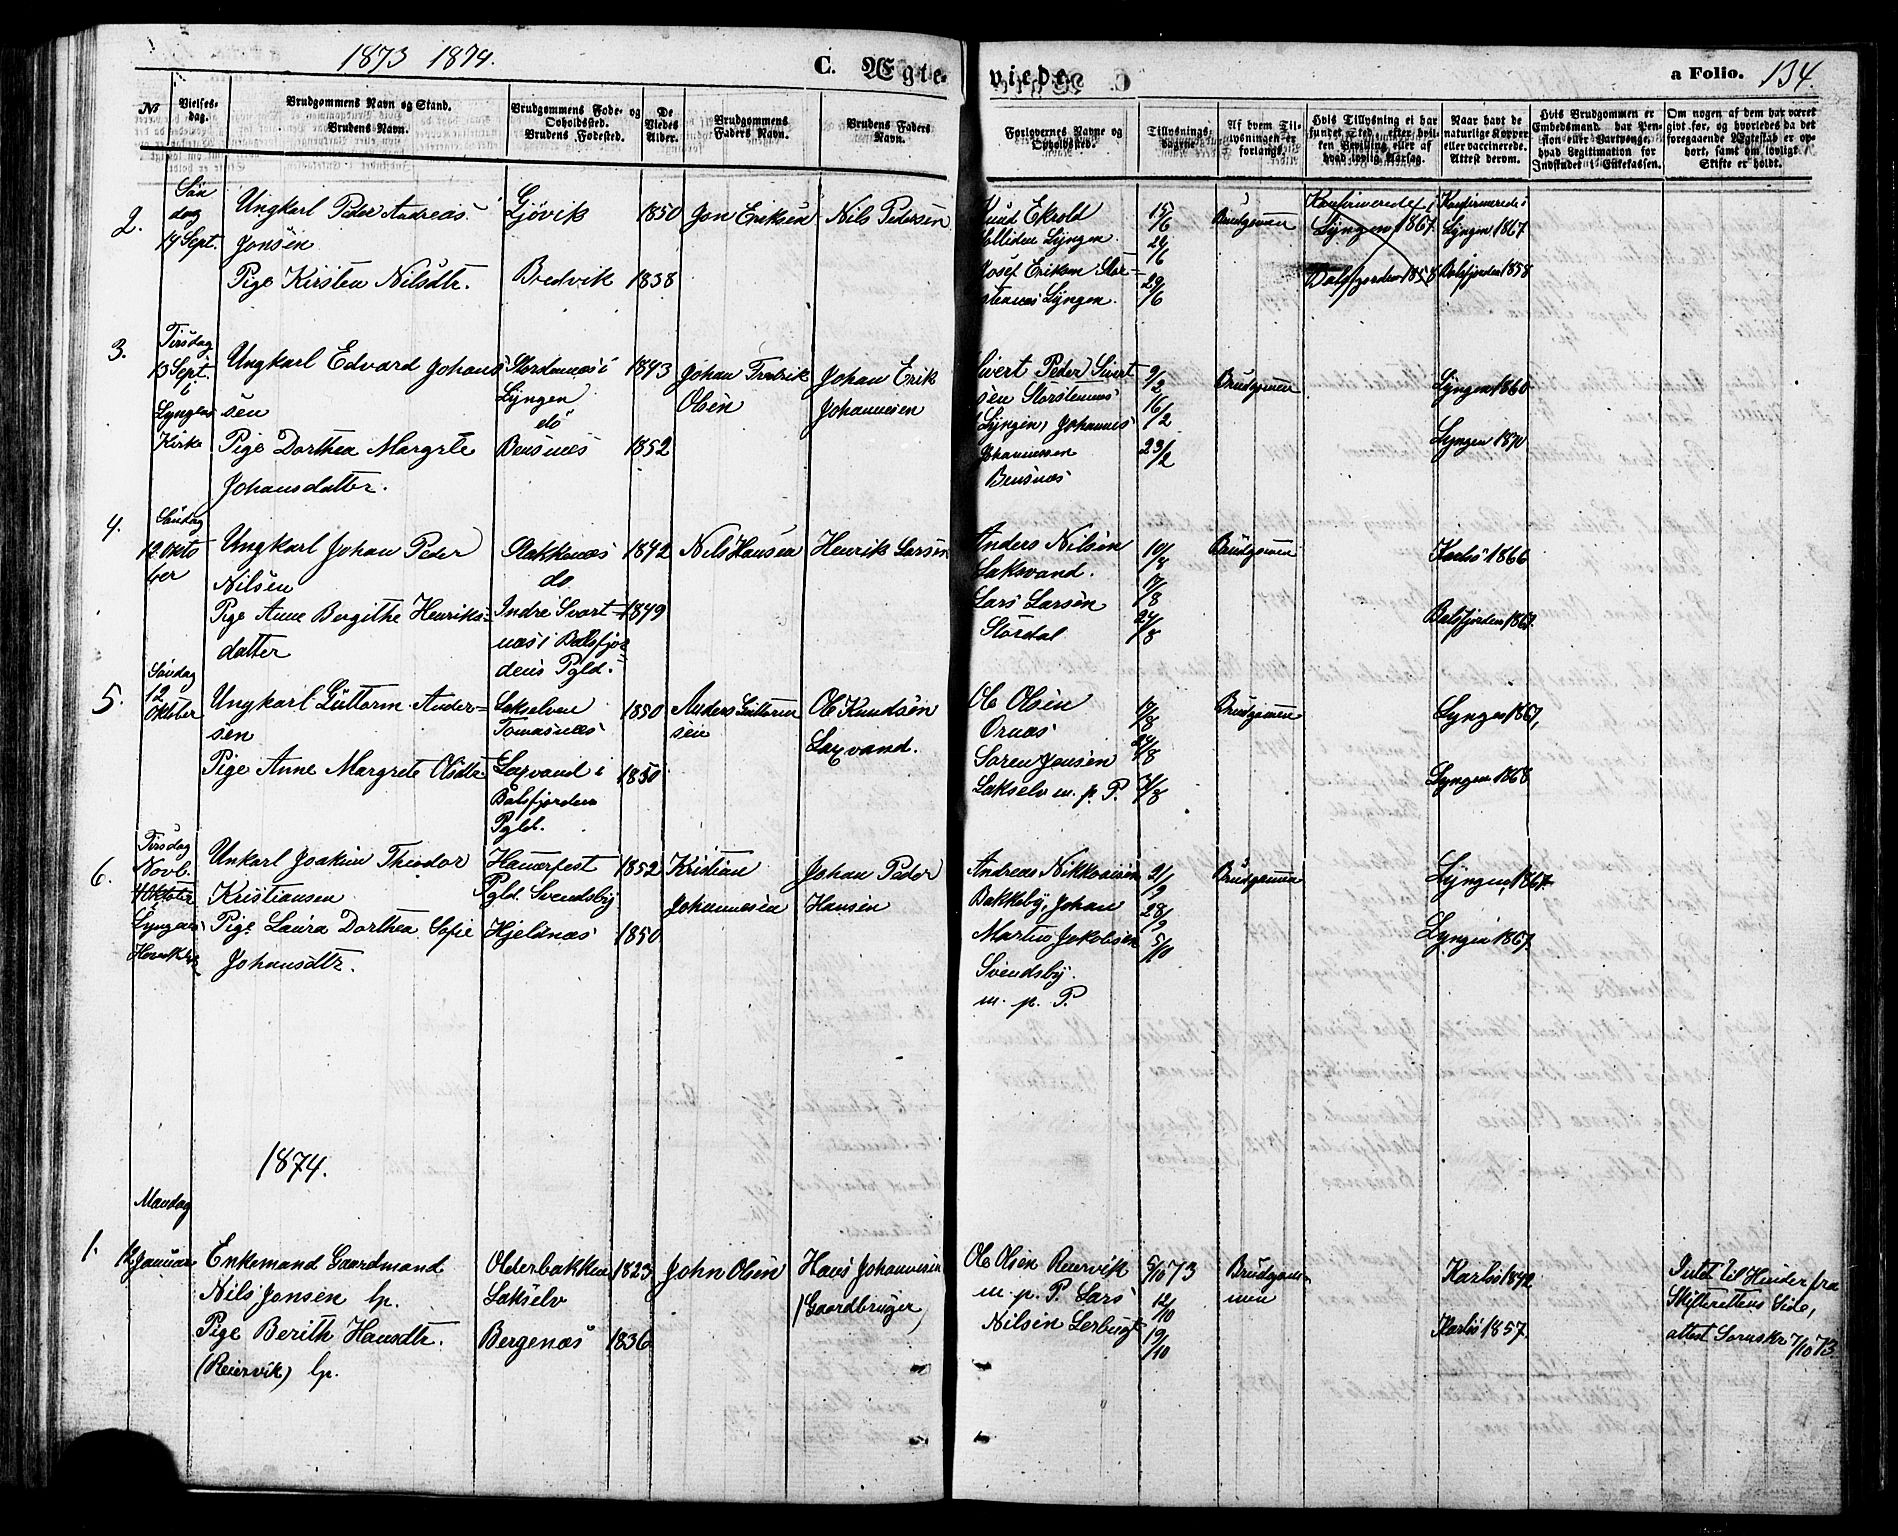 1873 1874.
C. Ægte-
viede
a Folio. 134.
No
Vielses-
dag.
Brudgommens Navn og Stand.
Brudens Navn.
Brudgommens Føde- og
Opholdssted.
Brudens Fødested.
De
Viedes
Alder.
Brudgommens
Faders Navn.
Brudens Faders
Navn.
Forlovernes Navne og
Opholdssted.
Tillysnings-
dagene.
Af hvem Til-
lysningen er
forlangt.
Hvis Tillysning ei har
fundet Sted, efter hvil-
ken Bevilling eller af
hvad lovlig Aarsag.
Naar havt de
naturlige Kopper
eller vaccinerede.
Attest derom.
Hvis Brudgommen er
Embedsmand, har Pen-
sion eller Vartpenge,
hvad Legitimation for
Indskudet i Enkekassen.
Om nogen af dem har været
gift før, og hvorledes da det
foregaaende Ægteskab er op-
hørt, samt om lovligt
Skifte er holdt.
2.
Søn
dag
14 Sept.
Ungkarl Peder Andreas
Jonsen
Pige Kirsten Nilsdtr.
Gjövik
Bredvik
1850
1838
Jon Eriksen
Nils Pedersen
Knud Ekrold
Lyngen.
Josef Eriksen Stor-
stennes Lyngen.
15/6
22/6
29/6
Brudgommen
Konfirmerede i
Lyngen 1867
Balsfjorden 1858
Konfirmerede i
Lyngen 1867
Balsfjorden 1858
3.
Tirsdag
13 Sept.
i
Lyngens
Kirke
Ungkarl Edvard Johans
sen
Pige Dorthea Margrete
Johansdatter.
Stordennæs i
Lyngen
do
Bensnæs
1843
1852
Johan Fredrik
Olsen
Johan Erik
Johannesen
Sivert Peder Sivert
sen Storstennes
Lyngen, Johannes
Johannessen
Bensnæs
9/2
16/2
23/2
Brudgommen
Lyngen 1860
Lyngen 1870
4.
Søndag
12 Okto
ber
Ungkarl Johan Peder
Nilsen
Pige Anne Bergithe Henriks-
datter
Stakkenæs
do
Indre Svart-
næs i Balsfjor
dens Pgld.
1842
1849
Nils Hansen
Henrik Larsen
Anders Nilsen
Laksvand.
Lars Larsen
Stordal
10/8
17/8
24/8
Brudgommen
Karlsö 1866
Balsfjorden 1867.
5.
Søndag
12
Oktober
Ungkarl Guttorm Ander-
sen
Pige Anne Margrete Olsdtr
Lakselven
Tomasnæs
Laxvand i
Balsfjorden
Pgld.
1850
1850
Anders Guttorm
sen
Ole Knudsen
Laxvand.
Ole Olsen
Ornæs
Søren Jensen
Lakselv m. p. P.
17/8
24/8
31/8
Brudgommen
Lyngen 1867,
Lyngen 1868
6.
Tirsdag
Novb.
4 Oktober
Lyngens
Hovedkirke
Unkarl Joakim Theodor
Kristiansen
Pige Laura Dorthea Sofie
Johansdtr.
Hamerfest
Pgld. Svendsby
Hjeldnæs
1852
1850
Kristian
Johannesen
Johan Peder
Hansen
Andreas Nikkolaisen
Bakkeby, Johan
Martin Jakobsen
Svendsby.
m. p. P.
21/9
28/9
5/10
Brudgommen
Lyngen 1867
Lyngen 1867.
1874.
Mandag
1.
12 Januar
Enkemand Gaardmand
Nils Jonsen lp.
Pige Berith Hansdtr.
(Reiervik) lp.
Olderbakken
Lakselv
Bergenæs
1823
1836
John Olsen
Hans Johannesen
(Gaardbruger)
Ole Olsen Reiervik
m. p. P. Lars
Nilsen Lerbugt
5/10 73
12/10
19/10
Brudgom-
men
Karlsö 1842
Karlsö 1857.
Intet til Hinder fra
Skifterettens Side,
attest Sorenskr 7/10 73.